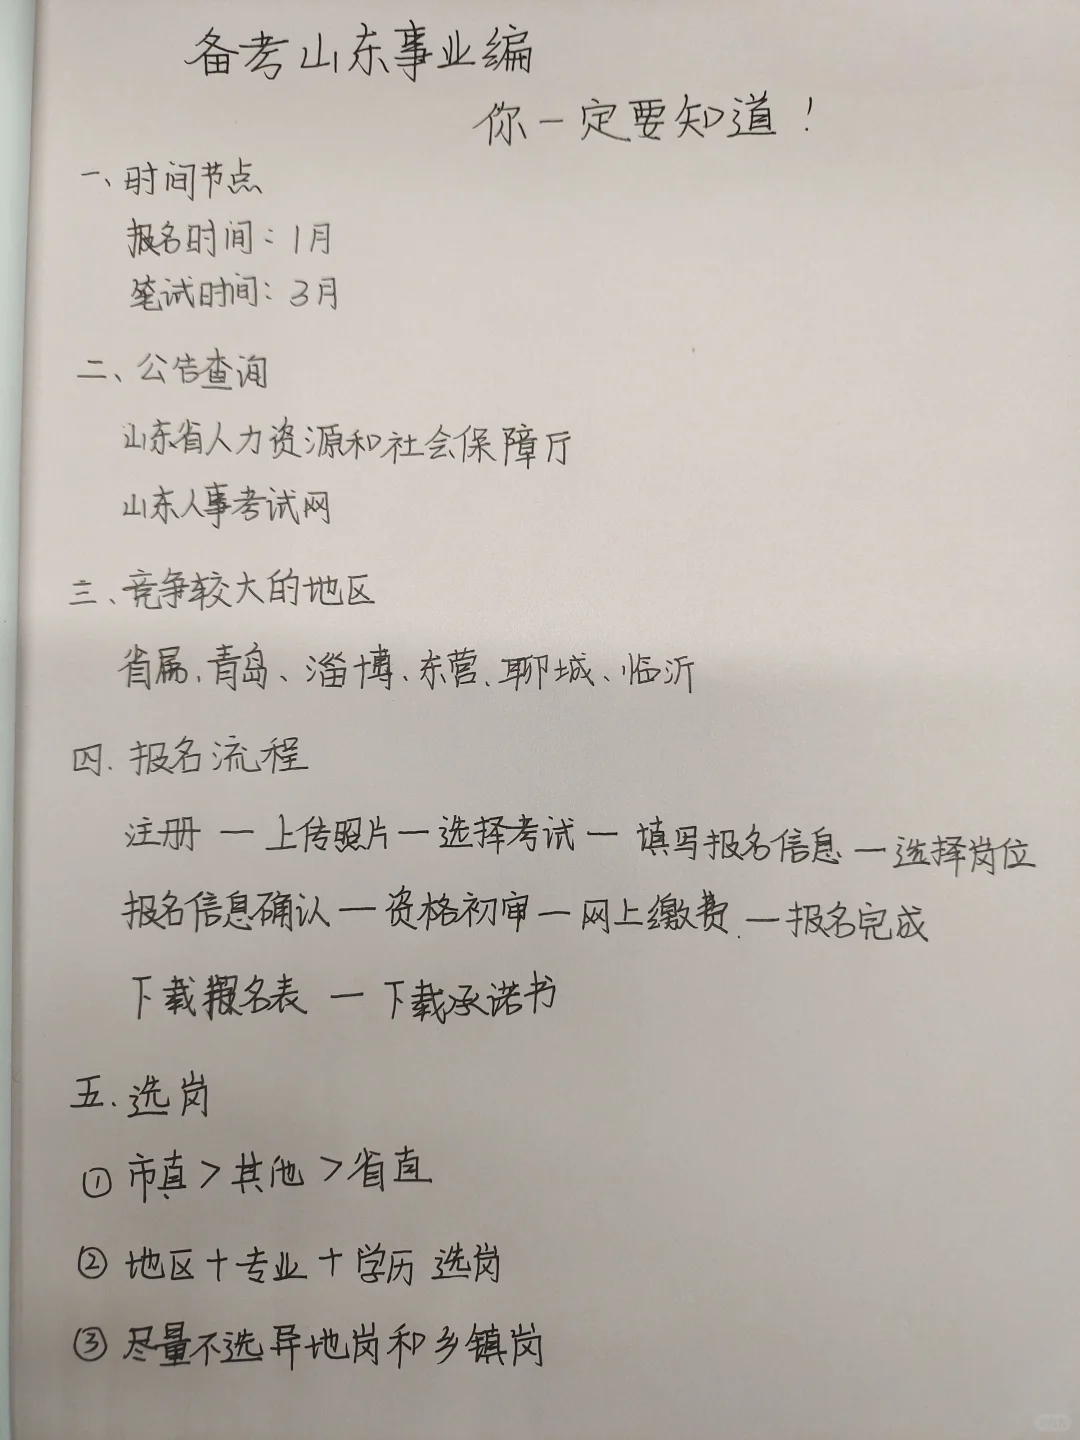 备考山东事业编
你一定要知道！
一、时间节点
报名时间：1月
笔试时间：3月
二、公告查询
山东省人力资源和社会保障厅
山东人事考试网
三、竞争较大的地区
省属、青岛、淄博、东营、聊城、临沂
四.报名流程
注册一上传照片一选择考试一填写报名信息一选择岗位
报名信息确认一资格初审一网上缴费.一报名完成
下载报名表一下载承诺书
五.选岗
①市直>其他>省直
②地区+专业+学历 选岗
③尽量不选异地岗和乡镇岗